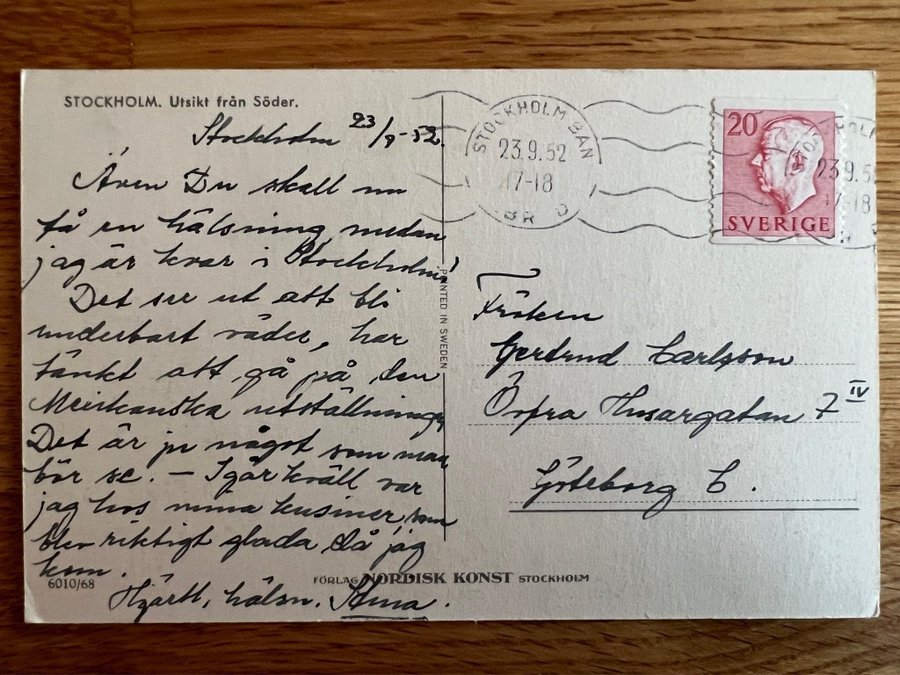 STOCKHOLM. Utsikt från Söder.
Stockholm 23/9-52.
Även Du skall nu
få en hälsning medan
jag är kvar i Stockholm!
Det ser ut att bli
underbart väder, har
tänkt att gå på den
Mexikanska utställningen
Det är ju något som man
bör se. – Igår kväll var
jag hos mina kusiner, som
blev riktigt glada då jag
kom.
Hjärtl. hälsn.
6010/68
PRINTED IN SWEDEN
FÖRLAG NORDISK KONST STOCKHOLM
STOCKHOLM BAN
23.9.52
17-18
20
SVERIGE
Fröken
Gertrud Carlsson
Övra Husargatan 7 IV
Göteborg C.